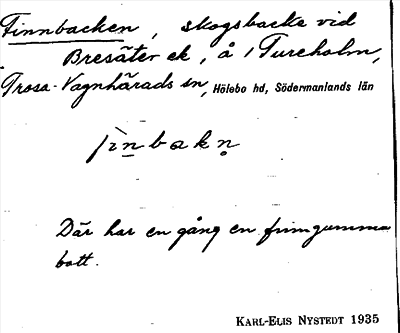 Finnbacken, skogsbacke vid
Bresäter ek, å / Tureholm,
Trosa-Vagnhärads sn, Hölebo hd, Södermanlands län
fìnbakn̥
Där har en gång en finngumma
bott.
KARL-ELIS NYSTEDT 1935